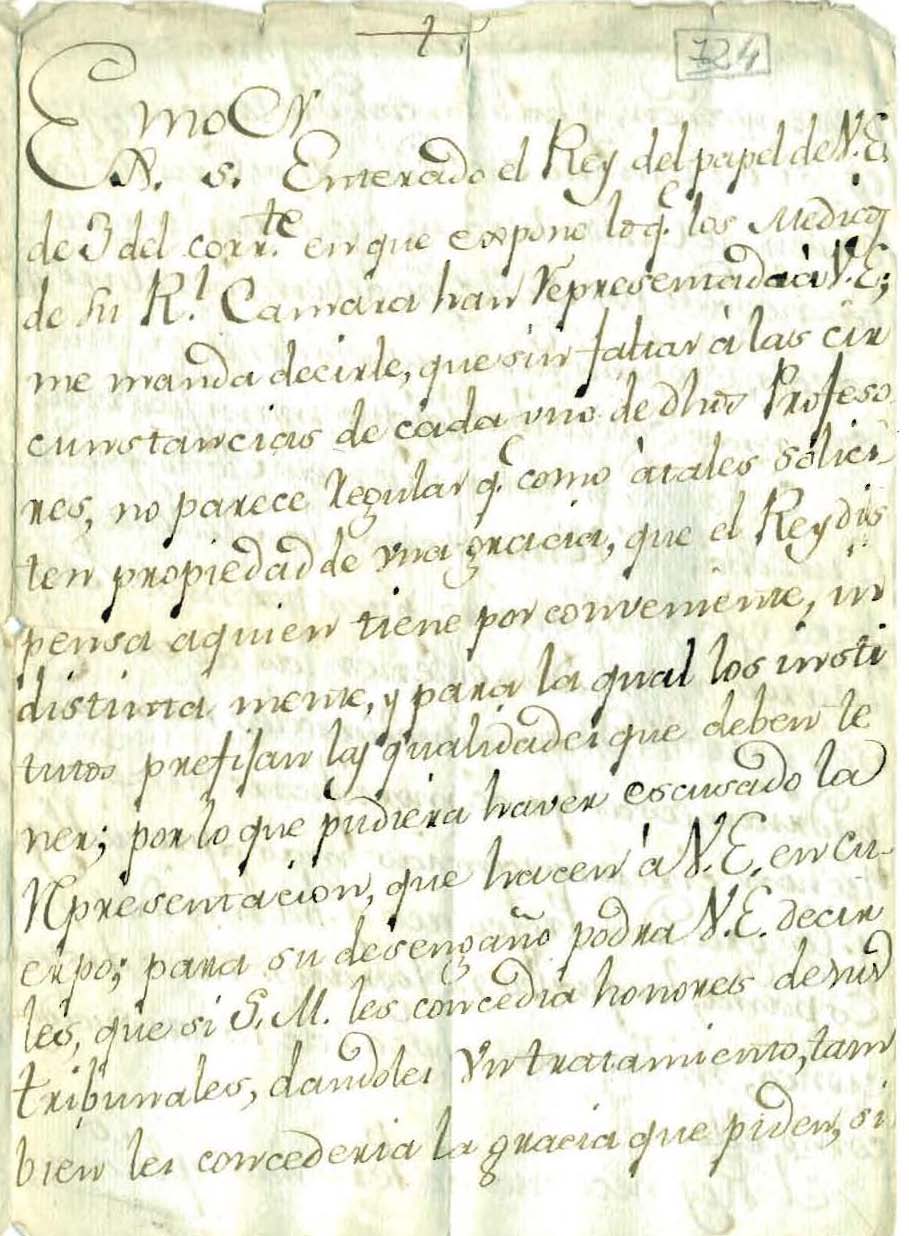 724
Exmo Sr
Sr. s. Enterado el Rey del papel de V.E.
de 3 del corr.te en que expone lo q.e los Medicos
de su R.l Camara han representado à V.E;
me manda decirle, que sin faltar à las cir
cunstancias de cada uno de dhos Profeso
res, no parece regular q.e como à tales solici
ten propiedad de una gracia, que el Rey dis
pensa a quien tiene por conveniente, in
distinta mente, y para la qual los insti
tutos prefijan las qualidades que deben te
ner; por lo que pudiera haver escusado la
representacion, que hacen à V.E. en cu-
erpo; para su desengaño podra V.E. decir
les, que si S.M. les concedia honores de sus
tribunales, dandoles un tratamiento, tam
bien les concederia la gracia que piden, si